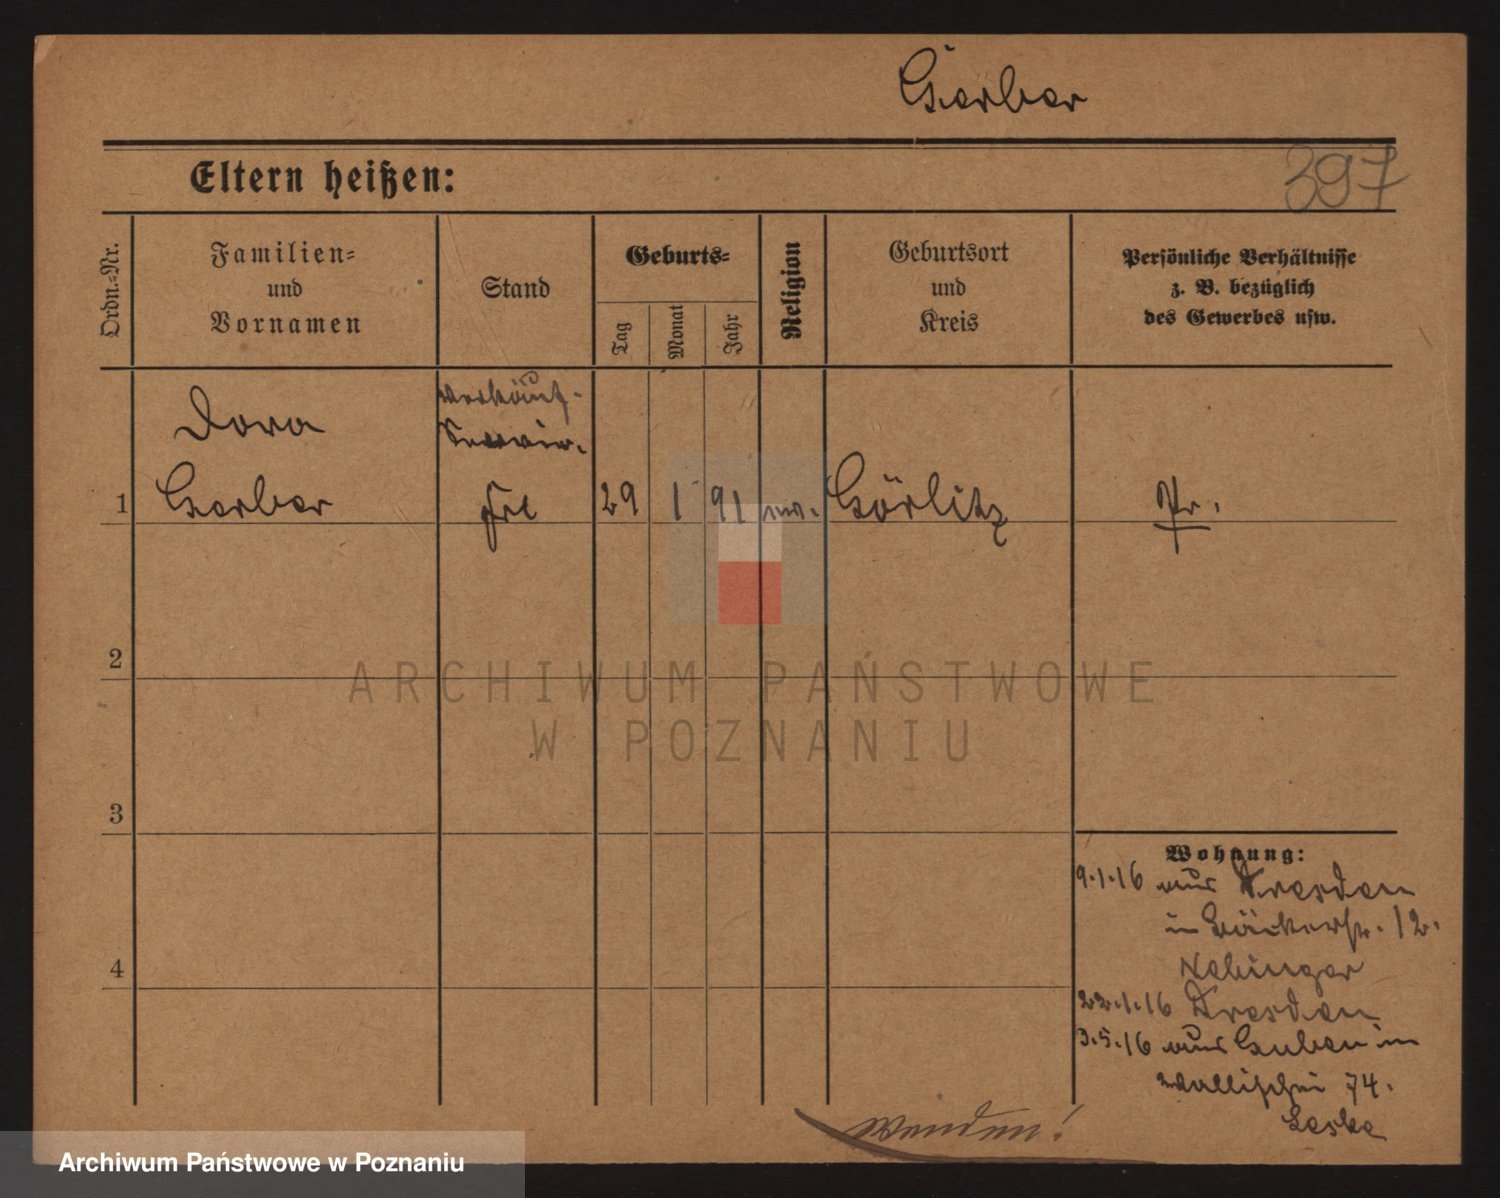 Gerber
397
Eltern heißen:
Ordn.=Nr.
Familien=
und
Vornamen
Stand
Geburts=
Tag
Monat
Jahr
Religion
Geburtsort
und
Kreis
Persönliche Verhältnisse
z. B. bezüglich
des Gewerbes usw.
Dora
Verkäuf-
1 Gerber Frl 29 1 91 Görlitz Pr.
2
3
4
ARCHIWUM PAŃSTWOWE
W POZNANIU
Wohnung:
9.1.16 aus Dresden
in Bäckerstr. 12.
22.1.16 Dresden
3.5.16 aus Guben in
Wallischei 74.
Leske
wenden!
Archiwum Państwowe w Poznaniu